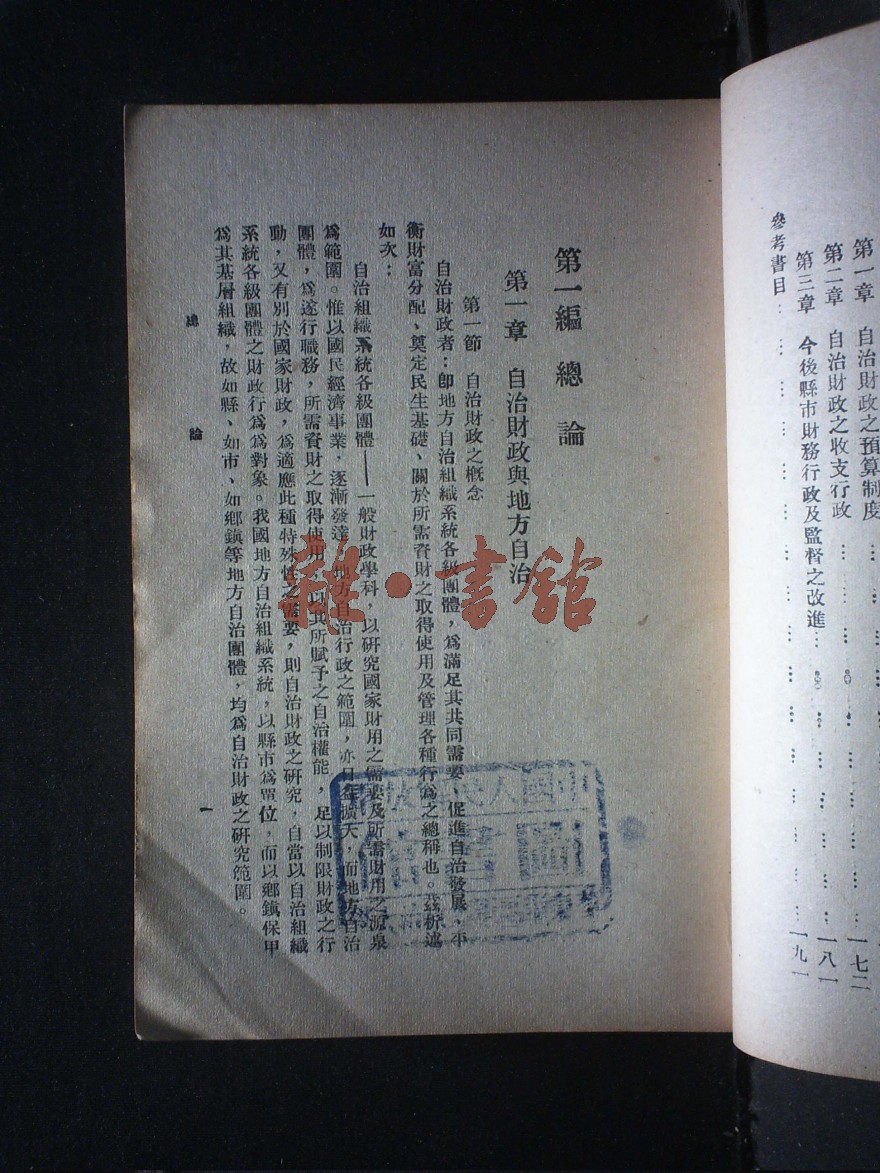 第一章　自治財政之預算制度……一七二
第二章　自治財政之收支行政……一八一
第三章　今後縣市財務行政及監督之改進……一九一
參考書目……
第一編　總論
第一章　自治財政與地方自治
第一節　自治財政之概念
自治財政者：卽地方自治組織系統各級團體，爲滿足其共同需要，促進自治發展，平
衡財富分配、奠定民生基礎、關於所需資財之取得使用及管理各種行爲之總稱也。茲析述
如次：
自治組織系統各級團體——一般財政學科，以研究國家財用之需要及所需財用之源泉
爲範圍。惟以國民經濟事業，逐漸發達，地方自治行政之範圍，亦日益擴大，而地方自治
團體，爲遂行職務，所需資財之取得使用，以其所賦予之自治權能，足以制限財政之行
動，又有別於國家財政，爲適應此種特殊性之需要，則自治財政之研究，自當以自治組織
系統各級團體之財政行爲爲對象。我國地方自治組織系統，以縣市爲單位，而以鄉鎭保甲
爲其基層組織，故如縣、如市、如鄉鎭等地方自治團體，均爲自治財政之研究範圍。
總論
一
雜·書館
圖書